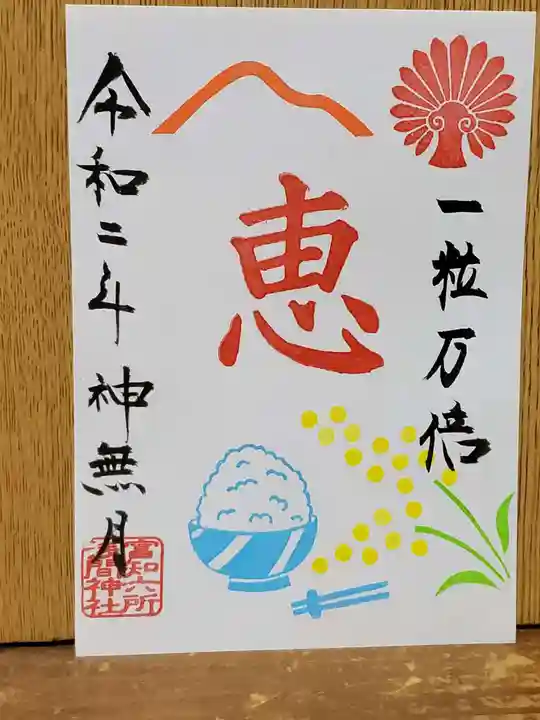 一粒万倍
恵
令和二年 神無月
富知六所
浅間神社